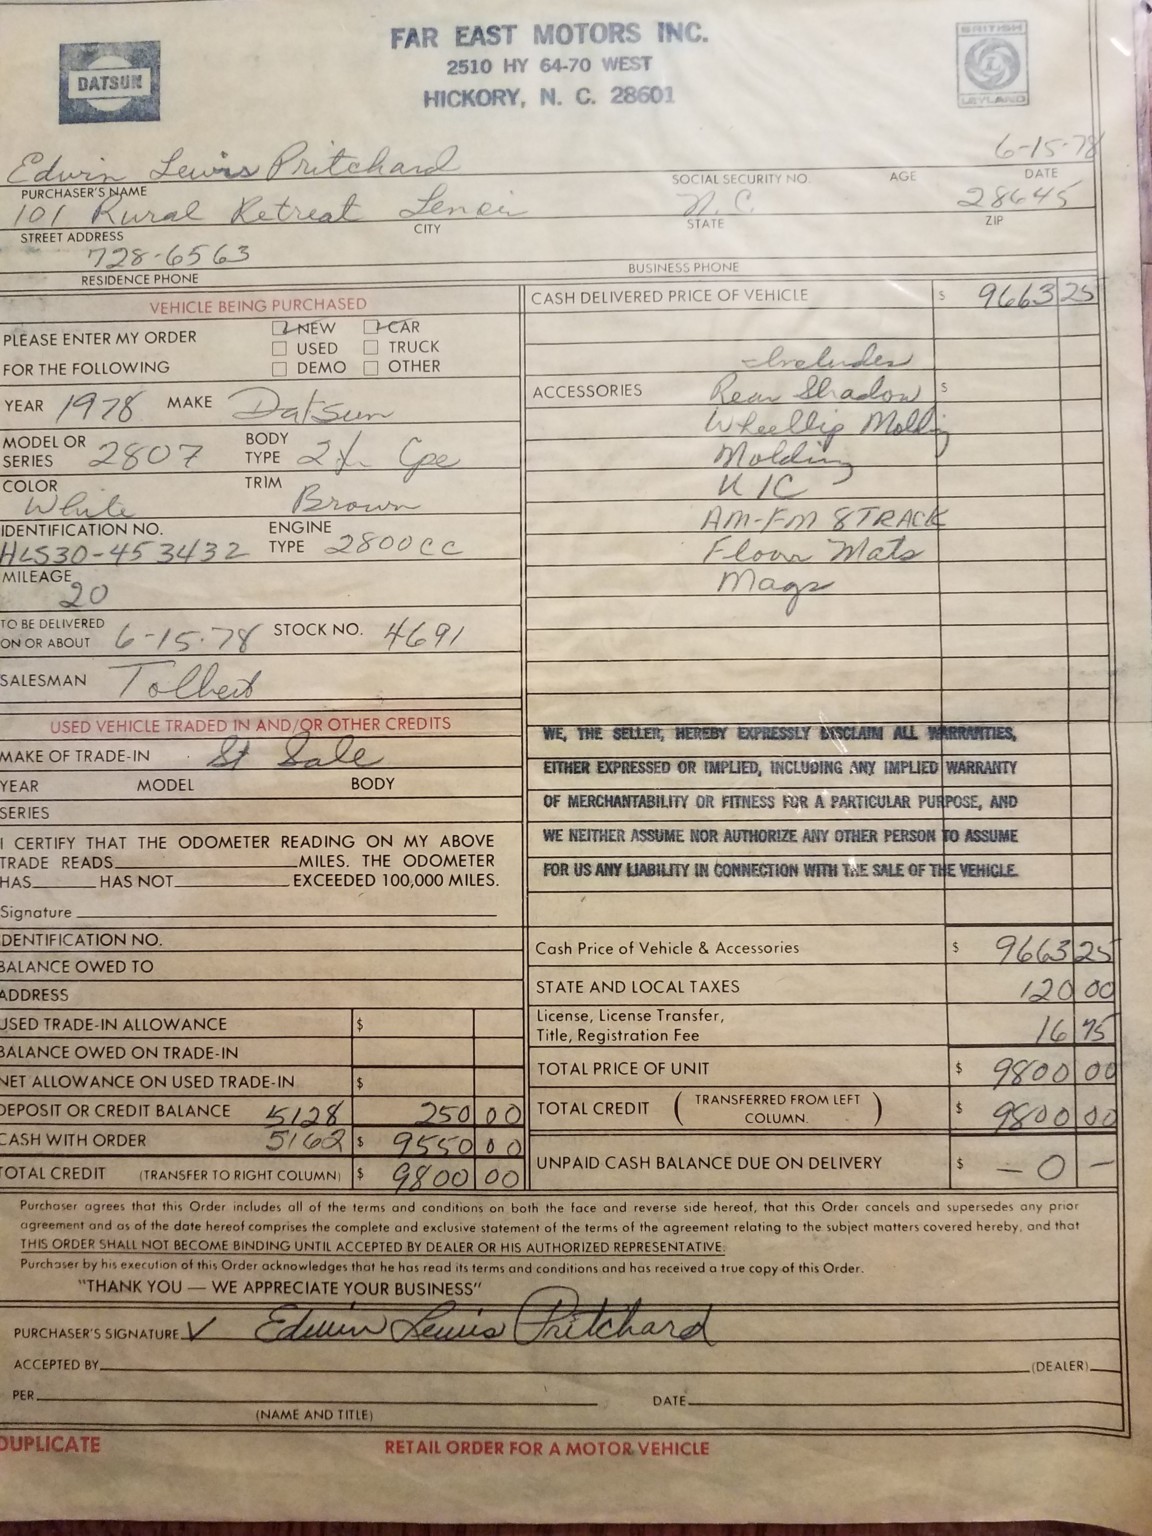 DATSUN
FAR EAST MOTORS INC.
2510 HY 64-70 WEST
HICKORY, N. C. 28601
BRITISH
L
LEYLAND
Edwin Lewis Pritchard
6-15-78
PURCHASER'S NAME
SOCIAL SECURITY NO. AGE DATE
101 Rural Retreat Lenoir N.C. 28645
STREET ADDRESS CITY STATE ZIP
728-6563
RESIDENCE PHONE BUSINESS PHONE
VEHICLE BEING PURCHASED
PLEASE ENTER MY ORDER
FOR THE FOLLOWING
NEW CAR
USED TRUCK
DEMO OTHER
YEAR 1978 MAKE Datsun
MODEL OR SERIES 2807 BODY TYPE Cpe
COLOR White TRIM Brown
IDENTIFICATION NO. HLS30-453432 ENGINE TYPE 2800cc
MILEAGE 20
TO BE DELIVERED
ON OR ABOUT 6-15-78 STOCK NO. 4691
SALESMAN Tolbert
CASH DELIVERED PRICE OF VEHICLE $ 9663 25
Includes
ACCESSORIES Rear Shadow $
Wheellip Molding
Molding
K IC
AM-FM 8 TRACK
Floor Mats
Mags
USED VEHICLE TRADED IN AND/OR OTHER CREDITS
MAKE OF TRADE-IN St Sale
YEAR MODEL BODY
SERIES
I CERTIFY THAT THE ODOMETER READING ON MY ABOVE
TRADE READS MILES. THE ODOMETER
HAS HAS NOT EXCEEDED 100,000 MILES.
Signature
WE, THE SELLER, HEREBY EXPRESSLY DISCLAIM ALL WARRANTIES,
EITHER EXPRESSED OR IMPLIED, INCLUDING ANY IMPLIED WARRANTY
OF MERCHANTABILITY OR FITNESS FOR A PARTICULAR PURPOSE, AND
WE NEITHER ASSUME NOR AUTHORIZE ANY OTHER PERSON TO ASSUME
FOR US ANY LIABILITY IN CONNECTION WITH THE SALE OF THE VEHICLE.
IDENTIFICATION NO.
BALANCE OWED TO
ADDRESS
USED TRADE-IN ALLOWANCE $
BALANCE OWED ON TRADE-IN
NET ALLOWANCE ON USED TRADE-IN $
DEPOSIT OR CREDIT BALANCE 5128 250 00
CASH WITH ORDER 5162 $ 9550 00
TOTAL CREDIT (TRANSFER TO RIGHT COLUMN) $ 9800 00
Cash Price of Vehicle & Accessories $ 9663 25
STATE AND LOCAL TAXES 120 00
License, License Transfer,
Title, Registration Fee 16 75
TOTAL PRICE OF UNIT $ 9800 00
TOTAL CREDIT (TRANSFERRED FROM LEFT COLUMN.) $ 9800 00
UNPAID CASH BALANCE DUE ON DELIVERY $ - 0 -
Purchaser agrees that this Order includes all of the terms and conditions on both the face and reverse side hereof, that this Order cancels and supersedes any prior
agreement and as of the date hereof comprises the complete and exclusive statement of the terms of the agreement relating to the subject matters covered hereby, and that
THIS ORDER SHALL NOT BECOME BINDING UNTIL ACCEPTED BY DEALER OR HIS AUTHORIZED REPRESENTATIVE.
Purchaser by his execution of this Order acknowledges that he has read its terms and conditions and has received a true copy of this Order.
"THANK YOU — WE APPRECIATE YOUR BUSINESS"
PURCHASER'S SIGNATURE Edwin Lewis Pritchard
ACCEPTED BY (DEALER)
PER DATE
(NAME AND TITLE)
DUPLICATE RETAIL ORDER FOR A MOTOR VEHICLE